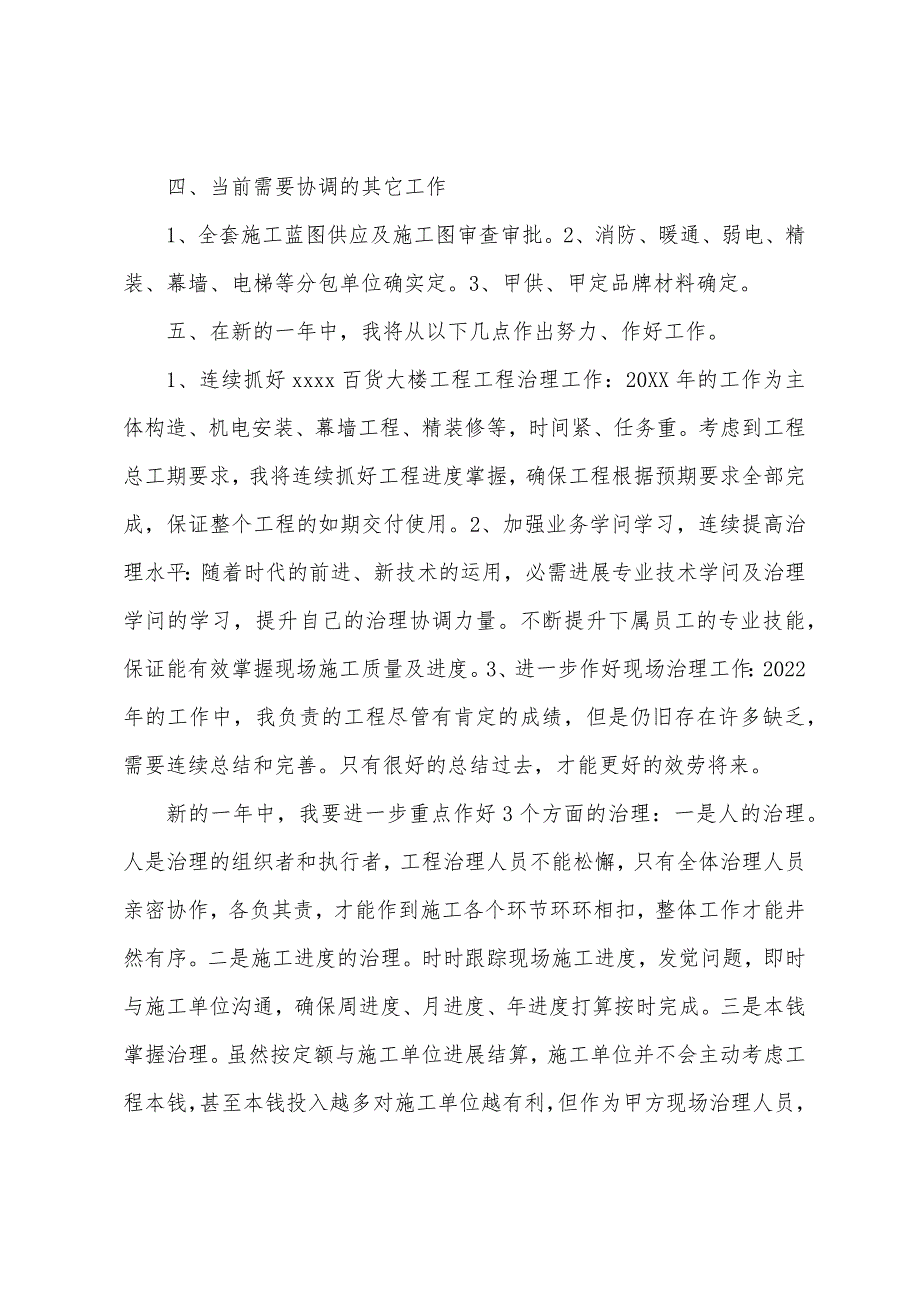 四、当前需要协调的其它工作
1、全套施工蓝图供应及施工图审查审批。2、消防、暖通、弱电、精
装、幕墙、电梯等分包单位确实定。3、甲供、甲定品牌材料确定。
五、在新的一年中，我将从以下几点作出努力、作好工作。
1、连续抓好 xxxx 百货大楼工程工程治理工作：20XX 年的工作为主
体构造、机电安装、幕墙工程、精装修等，时间紧、任务重。考虑到工程
总工期要求，我将连续抓好工程进度掌握，确保工程根据预期要求全部完
成，保证整个工程的如期交付使用。2、加强业务学问学习，连续提高治
理水平：随着时代的前进、新技术的运用，必需进展专业技术学问及治理
学问的学习，提升自己的治理协调力量。不断提升下属员工的专业技能，
保证能有效掌握现场施工质量及进度。3、进一步作好现场治理工作：2022
年的工作中，我负责的工程尽管有肯定的成绩，但是仍旧存在许多缺乏，
需要连续总结和完善。只有很好的总结过去，才能更好的效劳将来。
新的一年中，我要进一步重点作好 3 个方面的治理：一是人的治理。
人是治理的组织者和执行者，工程治理人员不能松懈，只有全体治理人员
亲密协作，各负其责，才能作到施工各个环节环环相扣，整体工作才能井
然有序。二是施工进度的治理。时时跟踪现场施工进度，发觉问题，即时
与施工单位沟通，确保周进度、月进度、年进度打算按时完成。三是本钱
掌握治理。虽然按定额与施工单位进展结算，施工单位并不会主动考虑工
程本钱，甚至本钱投入越多对施工单位越有利，但作为甲方现场治理人员，